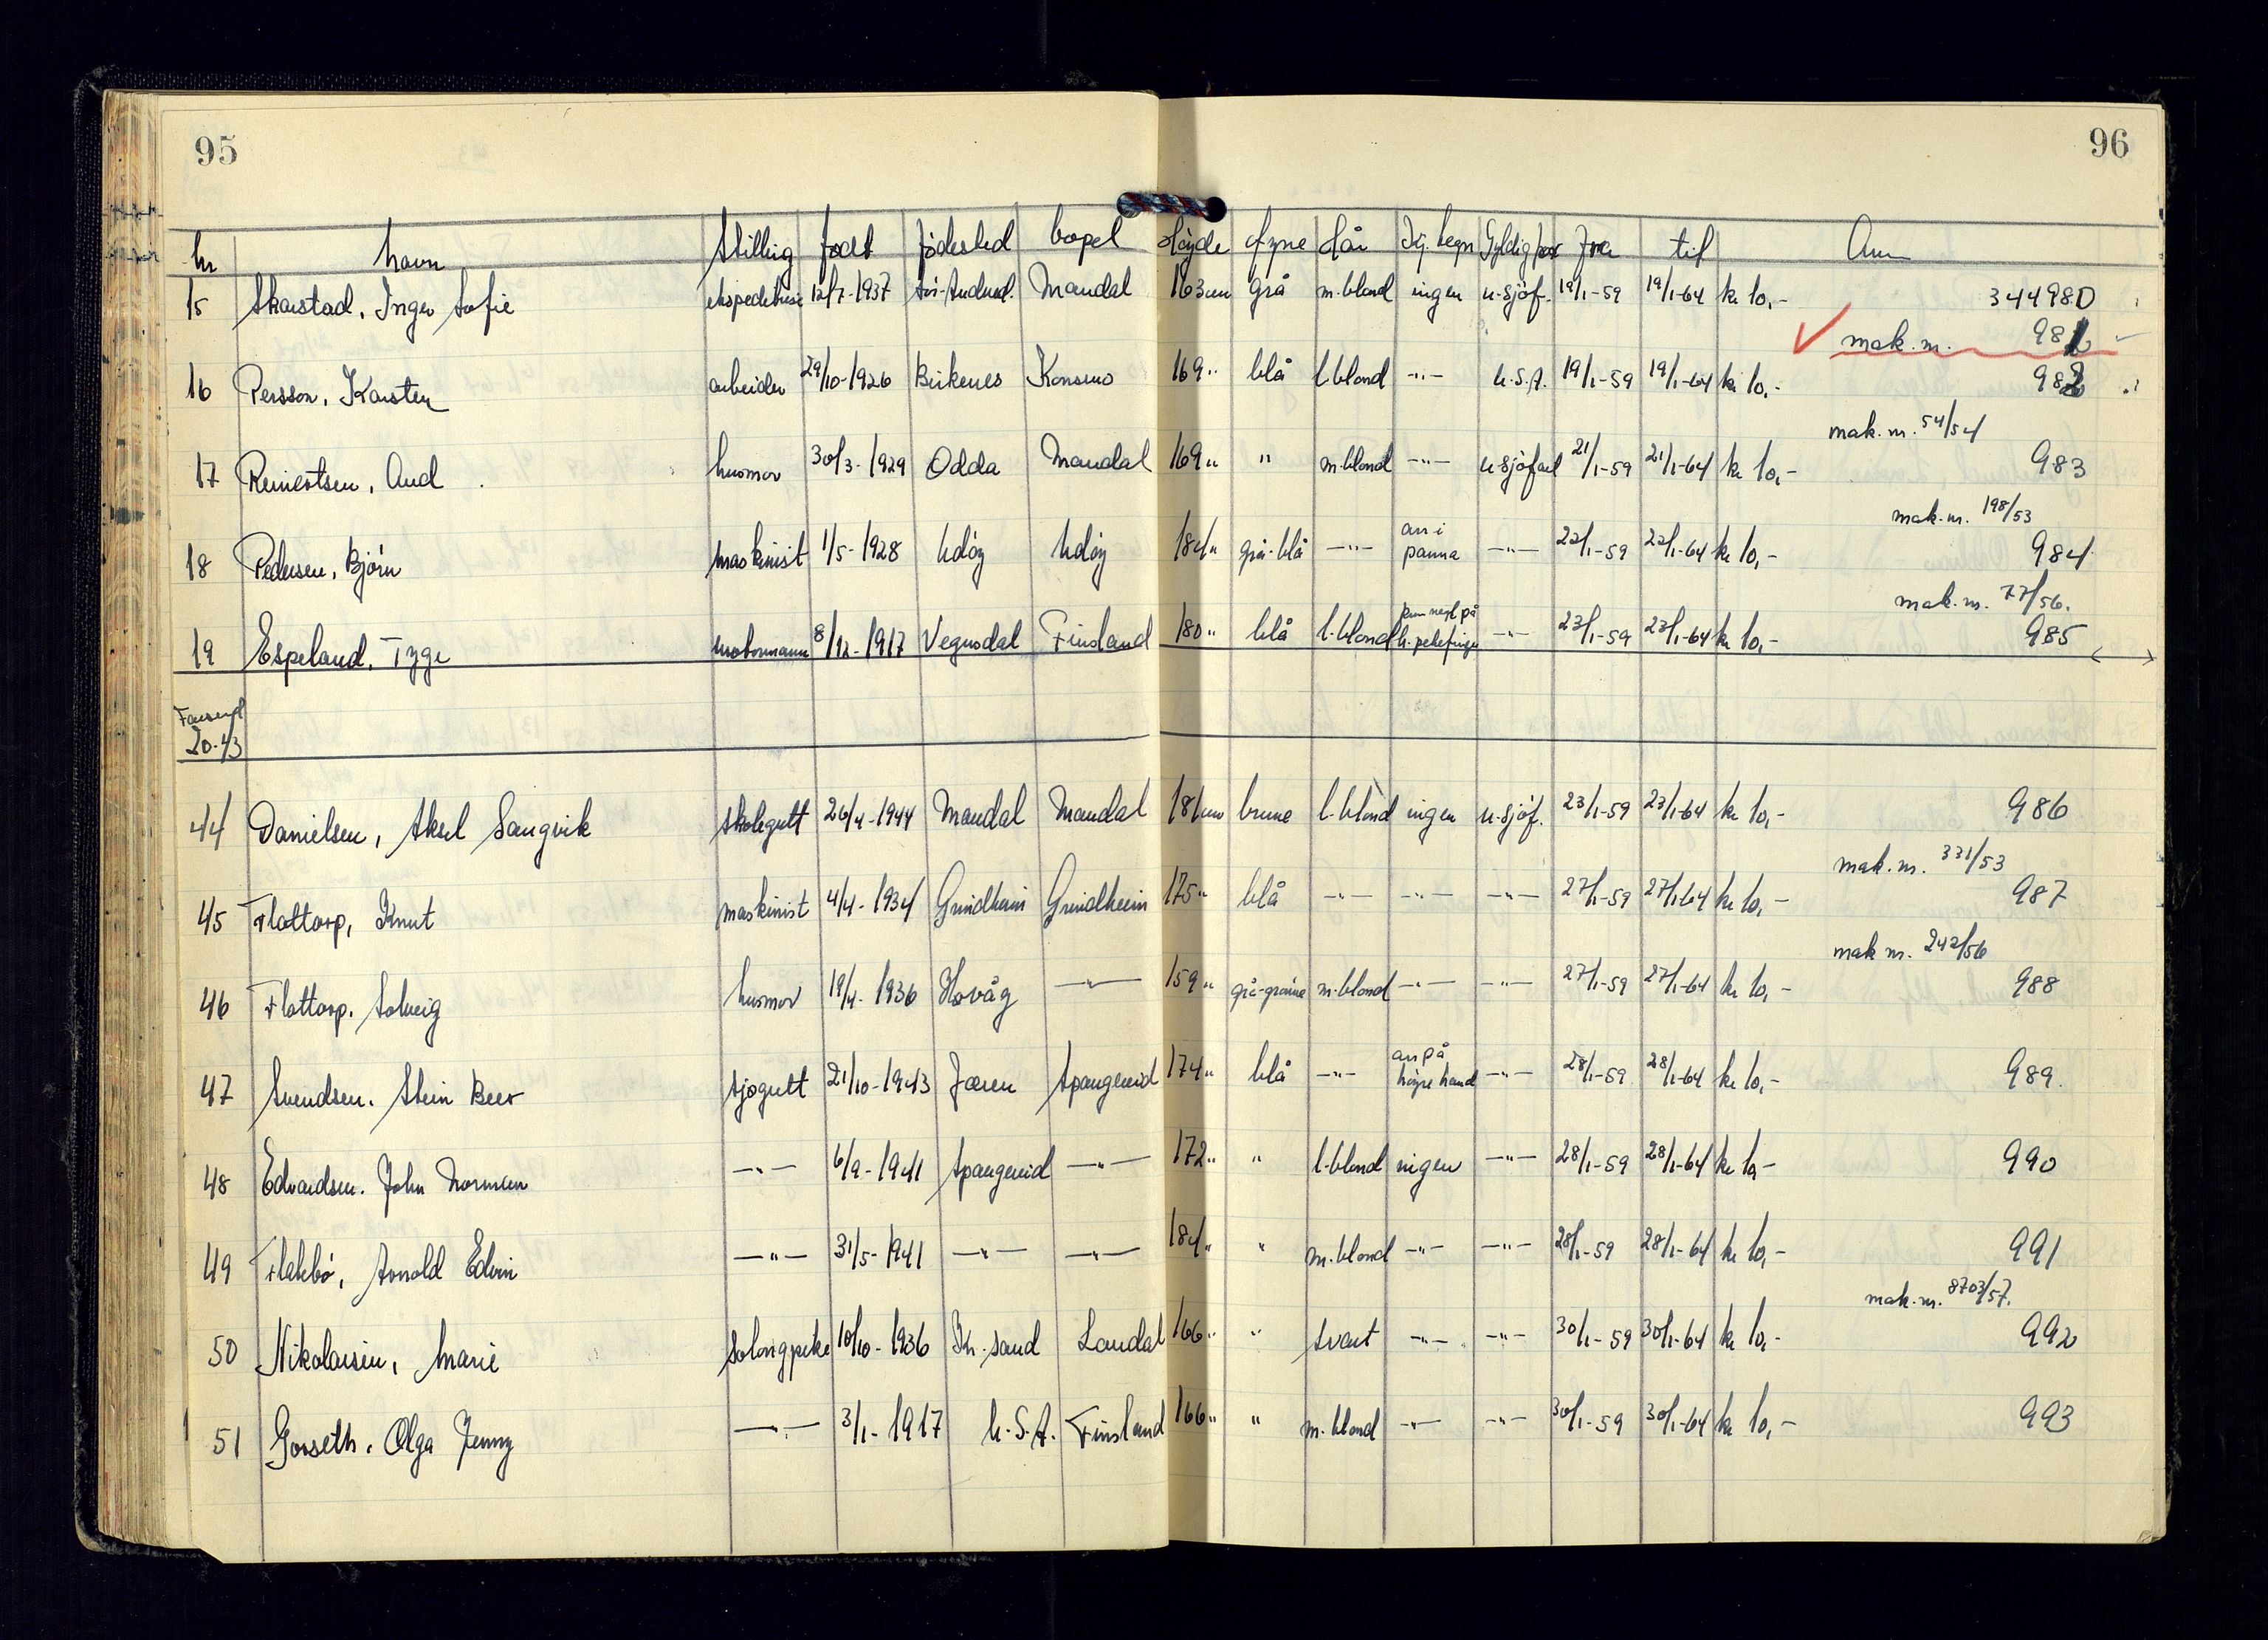 95
96
nr navn stilling født fødested bopel Høyde Øyne Hår Sig. tegn Gyldig for Fra til Anm
15 Skarstad, Inger Sofie ekspeditrise 12/7-1937 Sør-Audned. Mandal 163 cm grå m.blond ingen u-sjøf. 19/1-59 19/1-64 kr 10,- 344980
mak. nr. 981
16 Persson, Karsten arbeider 29/10-1926 Birkenes Konsmo 169 " blå l.blond -"- U.S.A. 19/1-59 19/1-64 kr 10,- 982
mak. nr. 54/54
17 Reinertsen, Aud husmor 30/3-1929 Odda Mandal 169 " " m.blond -"- u-sjøfart 21/1-59 21/1-64 kr 10,- 983
mak. nr. 198/53
18 Pedersen, Bjørn maskinist 1/5-1928 Udøy Udøy 184 " grå-blå -"- arr i panna -"- 22/1-59 22/1-64 kr 10,- 984
mak. nr. 77/56.
19 Espeland, Tyge motormann 8/12-1917 Vegusdal Finsland 180 " blå l.blond negl på h. pekefinger -"- 23/1-59 23/1-64 kr 10,- 985
20-43
44 Danielsen, Aksel Sangvik skolegutt 26/4-1944 Mandal Mandal 181 cm brune l-blond ingen u-sjøf. 23/1-59 23/1-64 kr 10,- 986
mak. nr. 331/53
45 Flottorp, Knut maskinist 4/4-1934 Grindheim Grindheim 175 " blå -"- -"- -"- 27/1-59 27/1-64 kr 10,- 987
mak nr. 242/56
46 Flottorp, Solveig husmor 19/4-1936 Høvåg -"- 159 " grå-grønne m.blond -"- -"- 27/1-59 27/1-64 kr 10,- 988
47 Svendsen, Stein Beer sjøgutt 21/10-1943 Jæren Spangereid 174 " blå -"- arr på høyre hand -"- 28/1-59 28/1-64 kr 10,- 989.
48 Edvardsen, John Norman -"- 6/9-1941 Spangereid -"- 172 " " l-blond ingen -"- 28/1-59 28/1-64 kr 10,- 990
49 Flakbø, Arnold Edvin -"- 31/5-1941 -"- -"- 184 " " m.blond -"- -"- 28/1-59 28/1-64 kr 10,- 991
mak. nr. 8703/57.
50 Nikolaisen, Marie salongpike 10/10-1936 Kr.sand Laudal 166 " " svart -"- -"- 30/1-59 30/1-64 kr 10,- 992
51 Gorseth, Olga Jenny -"- 3/1-1917 U.S.A. Finsland 166 " " m.blond -"- -"- 30/1-59 30/1-64 kr 10,- 993